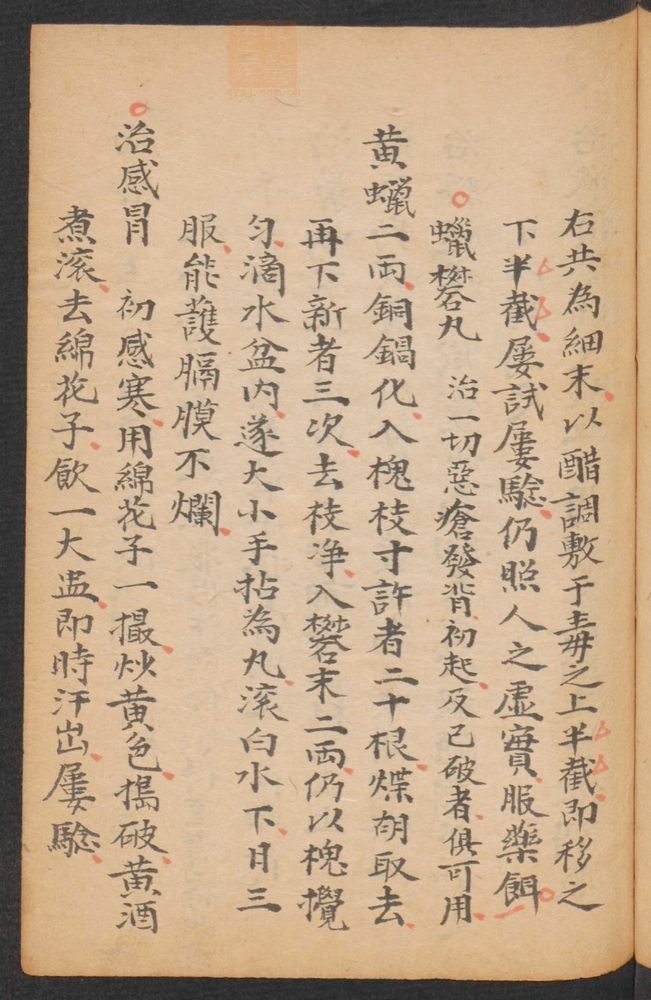 右共為細末以醋調敷于毒之上半截即移之
下半截屢試屢驗仍照人之虛實服藥餌
蠟礬丸 治一切惡瘡發背初起及已破者俱可用
黄蠟二两銅鍋化入槐枝寸許者二十根煠胡取去
再下新者三次去枝净入礬末二两仍以槐攪
匀滴水盆内遂大小手拈為丸滚白水下日三
服能護膈膜不爛
治感冒 初感寒用綿花子一撮炒黄色搗破黄酒
煮滚去綿花子飲一大盅即時汗出屢驗